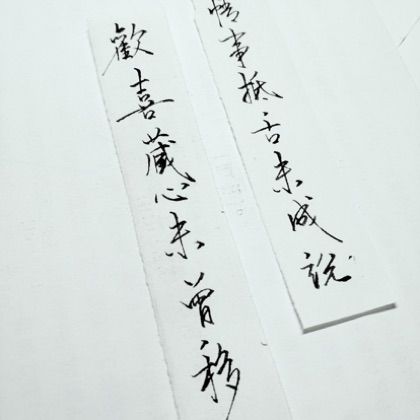 情事抵舌未成說
歡喜藏心未曾移